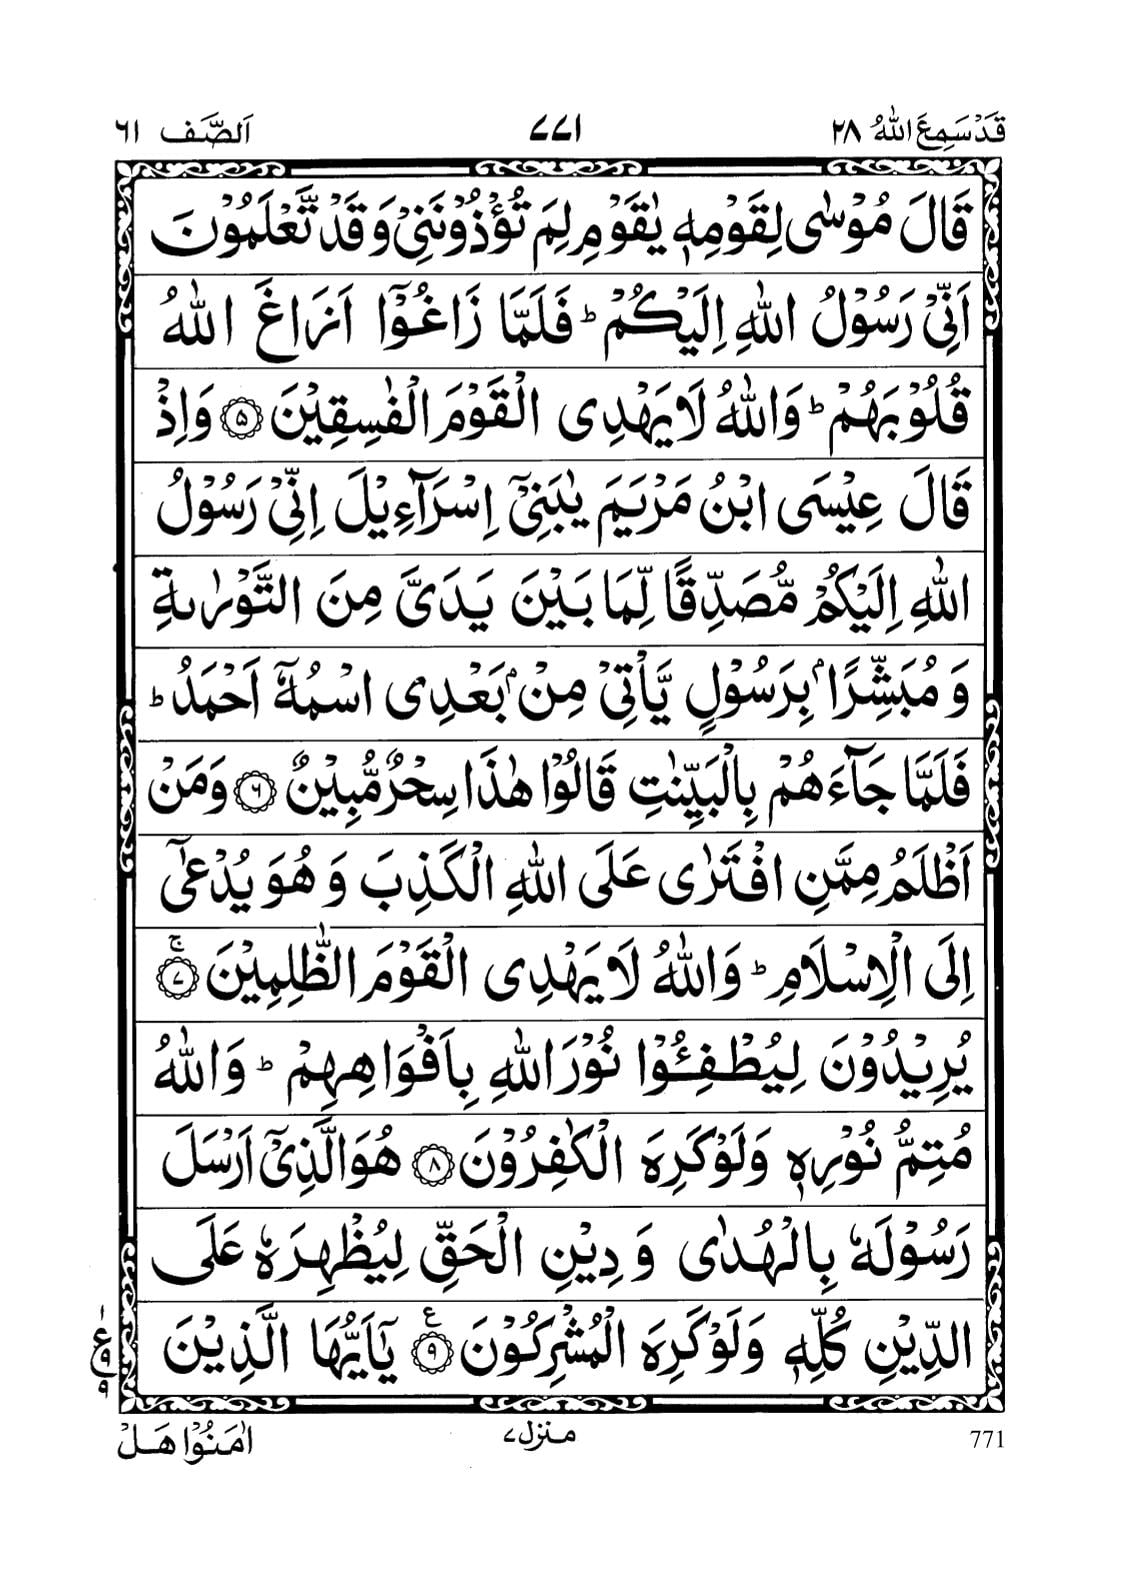 قَدۡ سَمِعَ اللّٰهُ ٢٨
٧٧١
اَلصَّف ٦١
قَالَ مُوۡسٰى لِقَوۡمِهٖ يٰقَوۡمِ لِمَ تُؤۡذُوۡنَنِىۡ وَقَدْ تَّعۡلَمُوۡنَ
اَنِّىۡ رَسُوۡلُ اللّٰهِ اِلَيۡكُمۡ‌ؕ فَلَمَّا زَاغُوۡۤا اَزَاغَ اللّٰهُ
قُلُوۡبَهُمۡ‌ؕ وَاللّٰهُ لَا يَهۡدِى الۡقَوۡمَ الۡفٰسِقِيۡنَ ۝۵ وَاِذۡ
قَالَ عِيۡسَى ابۡنُ مَرۡيَمَ يٰبَنِىۡۤ اِسۡرَآءِيۡلَ اِنِّىۡ رَسُوۡلُ
اللّٰهِ اِلَيۡكُمۡ مُّصَدِّقًا لِّمَا بَيۡنَ يَدَىَّ مِنَ التَّوۡرٰٮةِ
وَ مُبَشِّرًاۢ بِرَسُوۡلٍ يَّاۡتِىۡ مِنۡۢ بَعۡدِى اسۡمُهٗۤ اَحۡمَدُ‌ؕ
فَلَمَّا جَآءَهُمۡ بِالۡبَيِّنٰتِ قَالُوۡا هٰذَا سِحۡرٌ مُّبِيۡنٌ ۝۶ وَمَنۡ
اَظۡلَمُ مِمَّنِ افۡتَرٰى عَلَى اللّٰهِ الۡكَذِبَ وَ هُوَ يُدۡعٰٓى
اِلَى الۡاِسۡلَامِ‌ؕ وَاللّٰهُ لَا يَهۡدِى الۡقَوۡمَ الظّٰلِمِيۡنَ‌ۚ ۝۷
يُرِيۡدُوۡنَ لِيُطۡفِـُٔوۡا نُوۡرَ اللّٰهِ بِاَفۡوَاهِهِمۡ‌ؕ وَاللّٰهُ
مُتِمُّ نُوۡرِهٖ وَلَوۡ كَرِهَ الۡكٰفِرُوۡنَ ۝۸ هُوَ الَّذِىۡۤ اَرۡسَلَ
رَسُوۡلَهٗ بِالۡهُدٰى وَ دِيۡنِ الۡحَقِّ لِيُظۡهِرَهٗ عَلَى
الدِّيۡنِ كُلِّهٖ وَلَوۡ كَرِهَ الۡمُشۡرِكُوۡنَ ۝۹ ع يٰۤاَيُّهَا الَّذِيۡنَ
١ ع ٩ ٩
اٰمَنُوۡا هَلۡ
منزل ٧
771